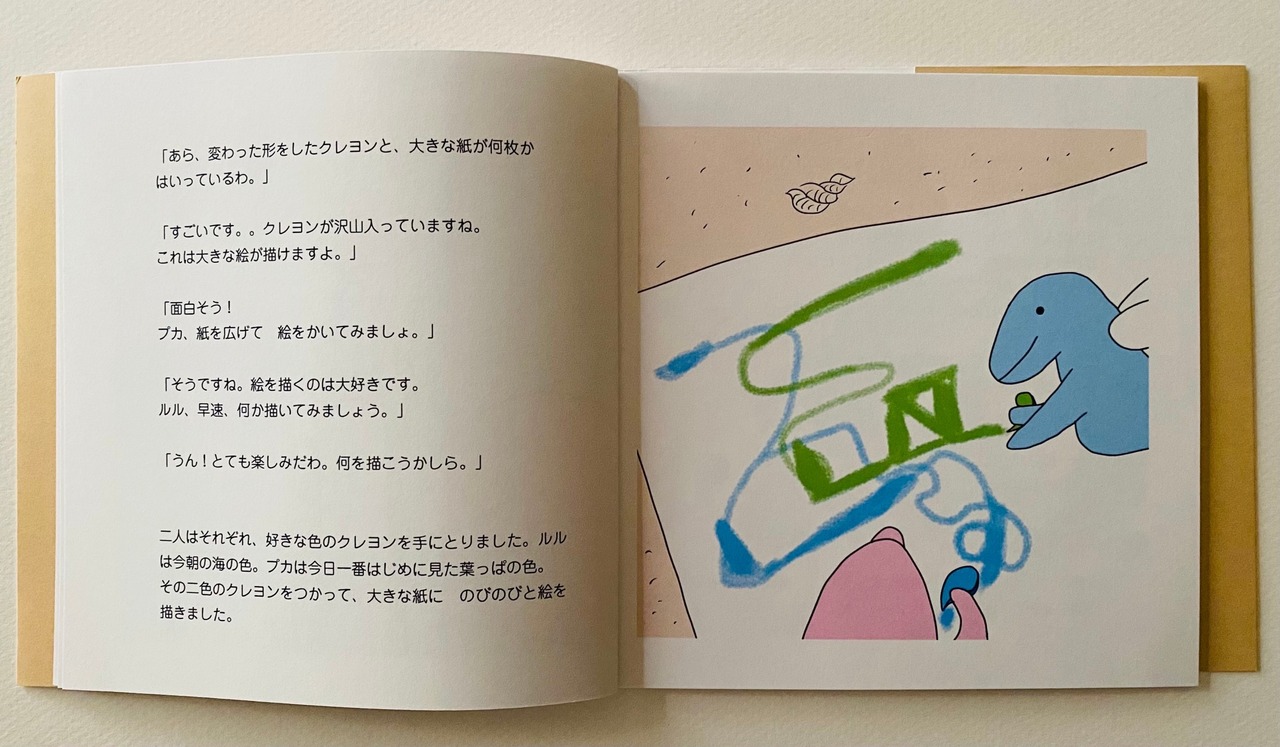 「あら、変わった形をしたクレヨンと、大きな紙が何枚か
はいっているわ。」
「すごいです。。クレヨンが沢山入っていますね。
これは大きな絵が描けますよ。」
「面白そう！
プカ、紙を広げて　絵をかいてみましょ。」
「そうですね。絵を描くのは大好きです。
ルル、早速、何か描いてみましょう。」
「うん！とても楽しみだわ。何を描こうかしら。」
二人はそれぞれ、好きな色のクレヨンを手にとりました。ルル
は今朝の海の色。プカは今日一番はじめに見た葉っぱの色。
その二色のクレヨンをつかって、大きな紙に　のびのびと絵を
描きました。